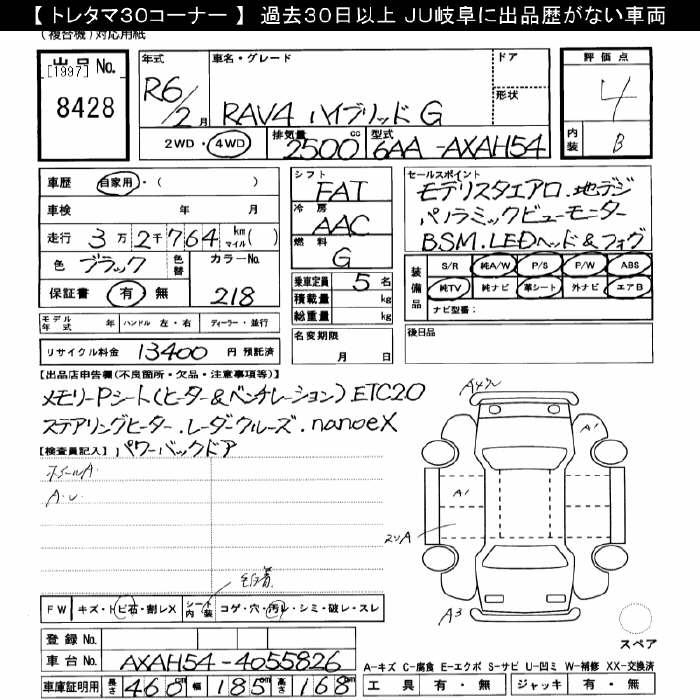 【 トレタマ30コーナー 】 過去30日以上 JU岐阜に出品歴がない車両
(複合機)対応用紙
出品 No.
[1997]
8428
年式
R6/2月
車名・グレード
RAV4 ハイブリッド G
ドア
形状
2WD・4WD
排気量
2500cc
型式
6AA-AXAH54
評価点
4
内装
B
車歴 自家用・( )
車検 年 月
走行 3万2千764 km マイル( )
色 ブラック
色替
カラーNo.
218
保証書 有・無
シフト
FAT
冷房
AAC
燃料
G
乗車定員 5名
積載量 kg
総重量 kg
セールスポイント
モデリスタエアロ.地デジ
パノラミックビューモニター
BSM.LEDヘッド&フォグ
装備品
S/R 純A/W P/S P/W ABS
純TV 純ナビ 革シート 外ナビ エアB
ナビ型番:
モデル年式 年 ハンドル 左・右 ディーラー・並行
リサイクル料金 13400 円 預託済
名変期限
月 日
後日品
【出品店申告欄(不良箇所・欠品・注意事項等)】
メモリーPシート(ヒーター&ベンチレーション) ETC2.0
ステアリングヒーター.レーダークルーズ.nanoeX
パワーバックドア
【検査員記入】
A.U
A1
A1
A3
FW キズ・トビ石・割レX
シート内装 コゲ・穴・汚レ・シミ・破レ・スレ
スペア
登録 No.
車台 No. AXAH54-4055826
車庫証明用 長さ 460cm 幅 185cm 高さ 168cm
A-キズ C-腐食 E-エクボ S-サビ U-凹ミ W-補修 XX-交換済
工具 有・無 ジャッキ 有・無